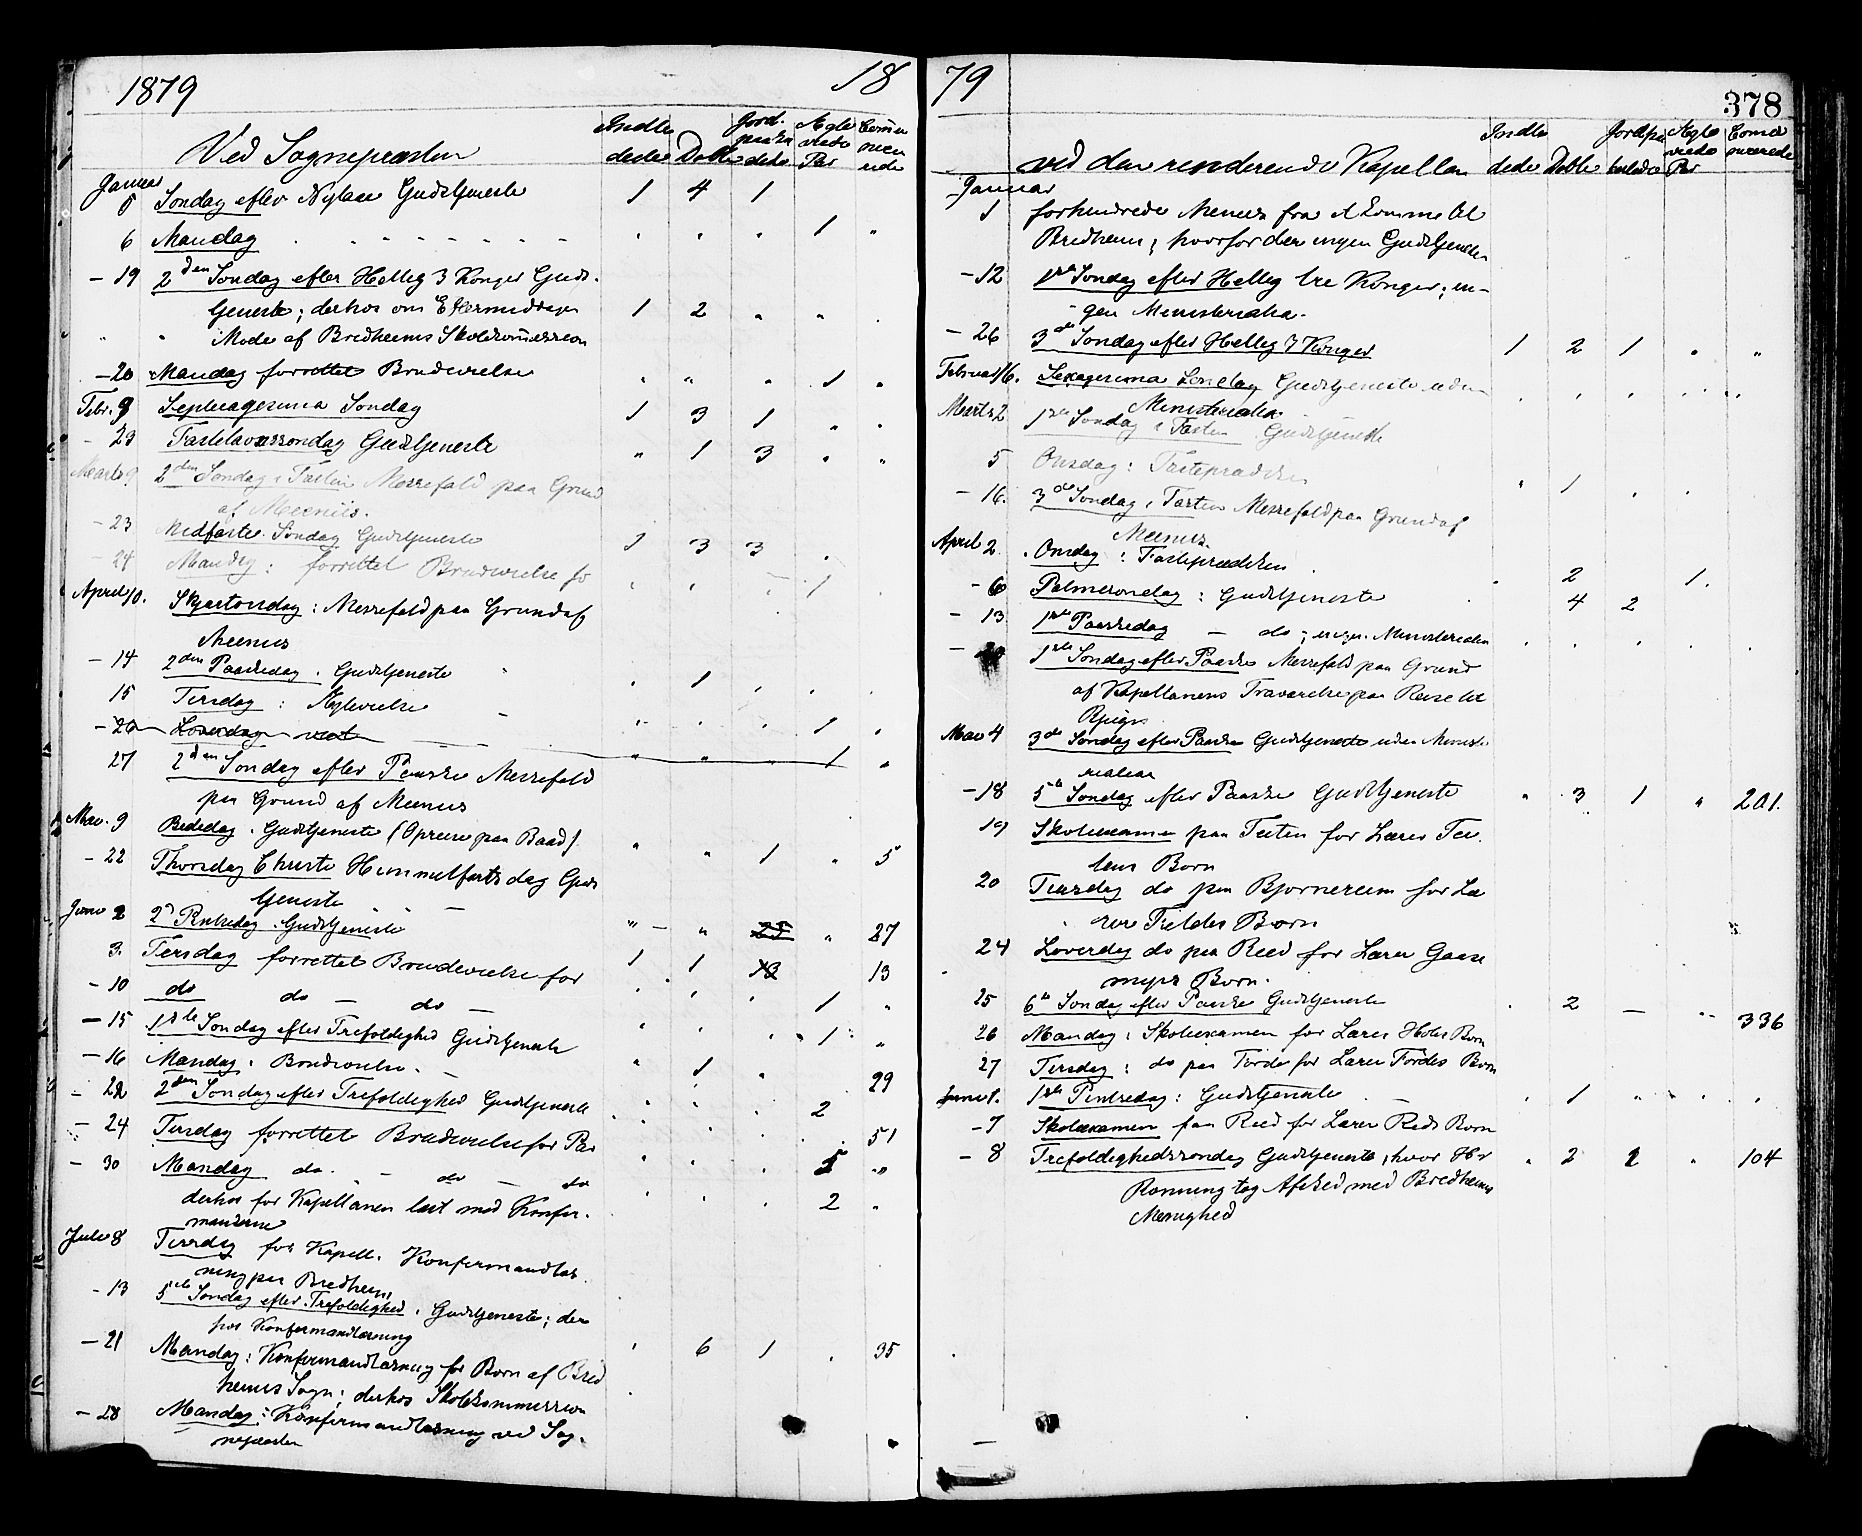 1879
Ved Sognepresten
Indle
dede
Døbte
Jord-
paaka
stede
Ægte
viede
Par
Comu
nice
rede
Januar
5 Søndag efter Nytaar Gudstjeneste 1 4 1
6 Mandag 1
- 19 2den Søndag efter Hellig 3 Konger Guds-
tjeneste; derhos om Eftermiddagen 1 2
Møde af Bredheims Skolekommission
- 20 Mandag forrettet Brudevielse 1
Febr. 9 Septuagesima Søndag 1 3 1
- 23 Fastelavnssøndag Gudstjeneste 1 3
Marts 9 2den Søndag i Fasten Messefald paa Grund
af Meeniis.
- 23 Midfaste Søndag Gudstjeneste 1 3 3
- 24 Mandag: forrettet Brudevielse fo 1
April 10. Skjærtorsdag: Messefald paa Grund af
Meeniis
- 14 2den Paaskedag. Gudstjeneste 1
15 Tirsdag: Ægtevielse 1
- 26 Løverdag viet 1
27 2den Søndag efter Paaske Messefald
paa Grund af Meeniis
Mai. 9 Bededag. Gudstjeneste (Opreise paa Baad). 1 5
- 22 Thorsdag Christi Himmelfarts dag Guds
tjeneste
Juni 2 2d Pintsedag. Gudstjeneste 25 27
3. Tirsdag forrettet Brudevielse for 1 1 13 13
- 10 do do - do - 1
- 15 1ste Søndag efter Trefoldighed Gudstjeneste 1
- 16 Mandag: Brudevielse. 1 29
- 22 2den Søndag efter Trefoldighed Gudstjeneste 2
- 24 Tirsdag forrettet Brudevielse for Par 51
- 30 Mandag do. - do - do
derhos for Kapellanen læst med Konfir- 2
manderne
Juli 8 Tirsdag for Kapell. Konfirmandlæs
ning paa Bredheim
- 13 5te Søndag efter Trefoldighed. Gudstjeneste; der
hos Konfirmandlæsning
- 21 Mandag: Konfirmandlæsning for Børn af Bred 6 1 35
heims Sogn; derhos Skolekommission
- 28 Mandag: Konfirmandlæsning ved Sog-
nepresten
1879
378
ved den residerende Kapellan
Indle
dede
Døbte
Jordpaa
kastede
Ægte
viede
Par
Comu
nicerede
Januar
1 forhindrede Meeniis fra at komme til
Bredheim; hvorfor der ingen Gudstjeneste
- 12 1ste Søndag efter Hellig tre Konger; in-
gen Ministerialia.
- 26 3de Søndag efter Hellig 3 Konger 1 2 1
Februar 16. Sexagesima Søndag Gudstjeneste uden
Ministerialia
Marts 2 1ste Søndag i Fasten Gudstjeneste
5 Onsdag: Fasteprædiken 1
- 16. 3de Søndag i Fasten Messefald paa Grund af
Meeniis.
April 2. Onsdag: Fasteprædiken 2 1.
- 6 Palmesøndag: Gudstjeneste 4 2
- 13 1ste Paaskedag - do; ingen Ministerialia
- 20 1ste Søndag efter Paaske Messefald paa Grund
af Kapellanens Fraværelse paa Reise til
Mai 4 3de Søndag efter Paaske Gudstjeneste uden Ministe
rialia
- 18 5te Søndag efter Paaske Gudstjeneste 3 1 201.
19 Skoleexamen paa for Lærer
Børn
20 Tirsdag do paa Bjørnereim for Læ
rer Børn
24 Løverdag do paa Reed for Lærer Gaase
myrs Børn.
25 6te Søndag efter Paaske Gudstjeneste 2 - 336
26 Mandag: Skoleexamen for Lærer Børn
27 Tirsdag: do paa Førde for Lærer Førdes Børn
Juni 1. 1ste Pintsedag: Gudstjeneste 1
- 7 Skoleexamen paa Reed for Lærer Reeds Børn
- 8 Trefoldighedssøndag Gudstjeneste, hvor Hr 2 2 104
Rønning tog Afsked med Bredheims
Menighed